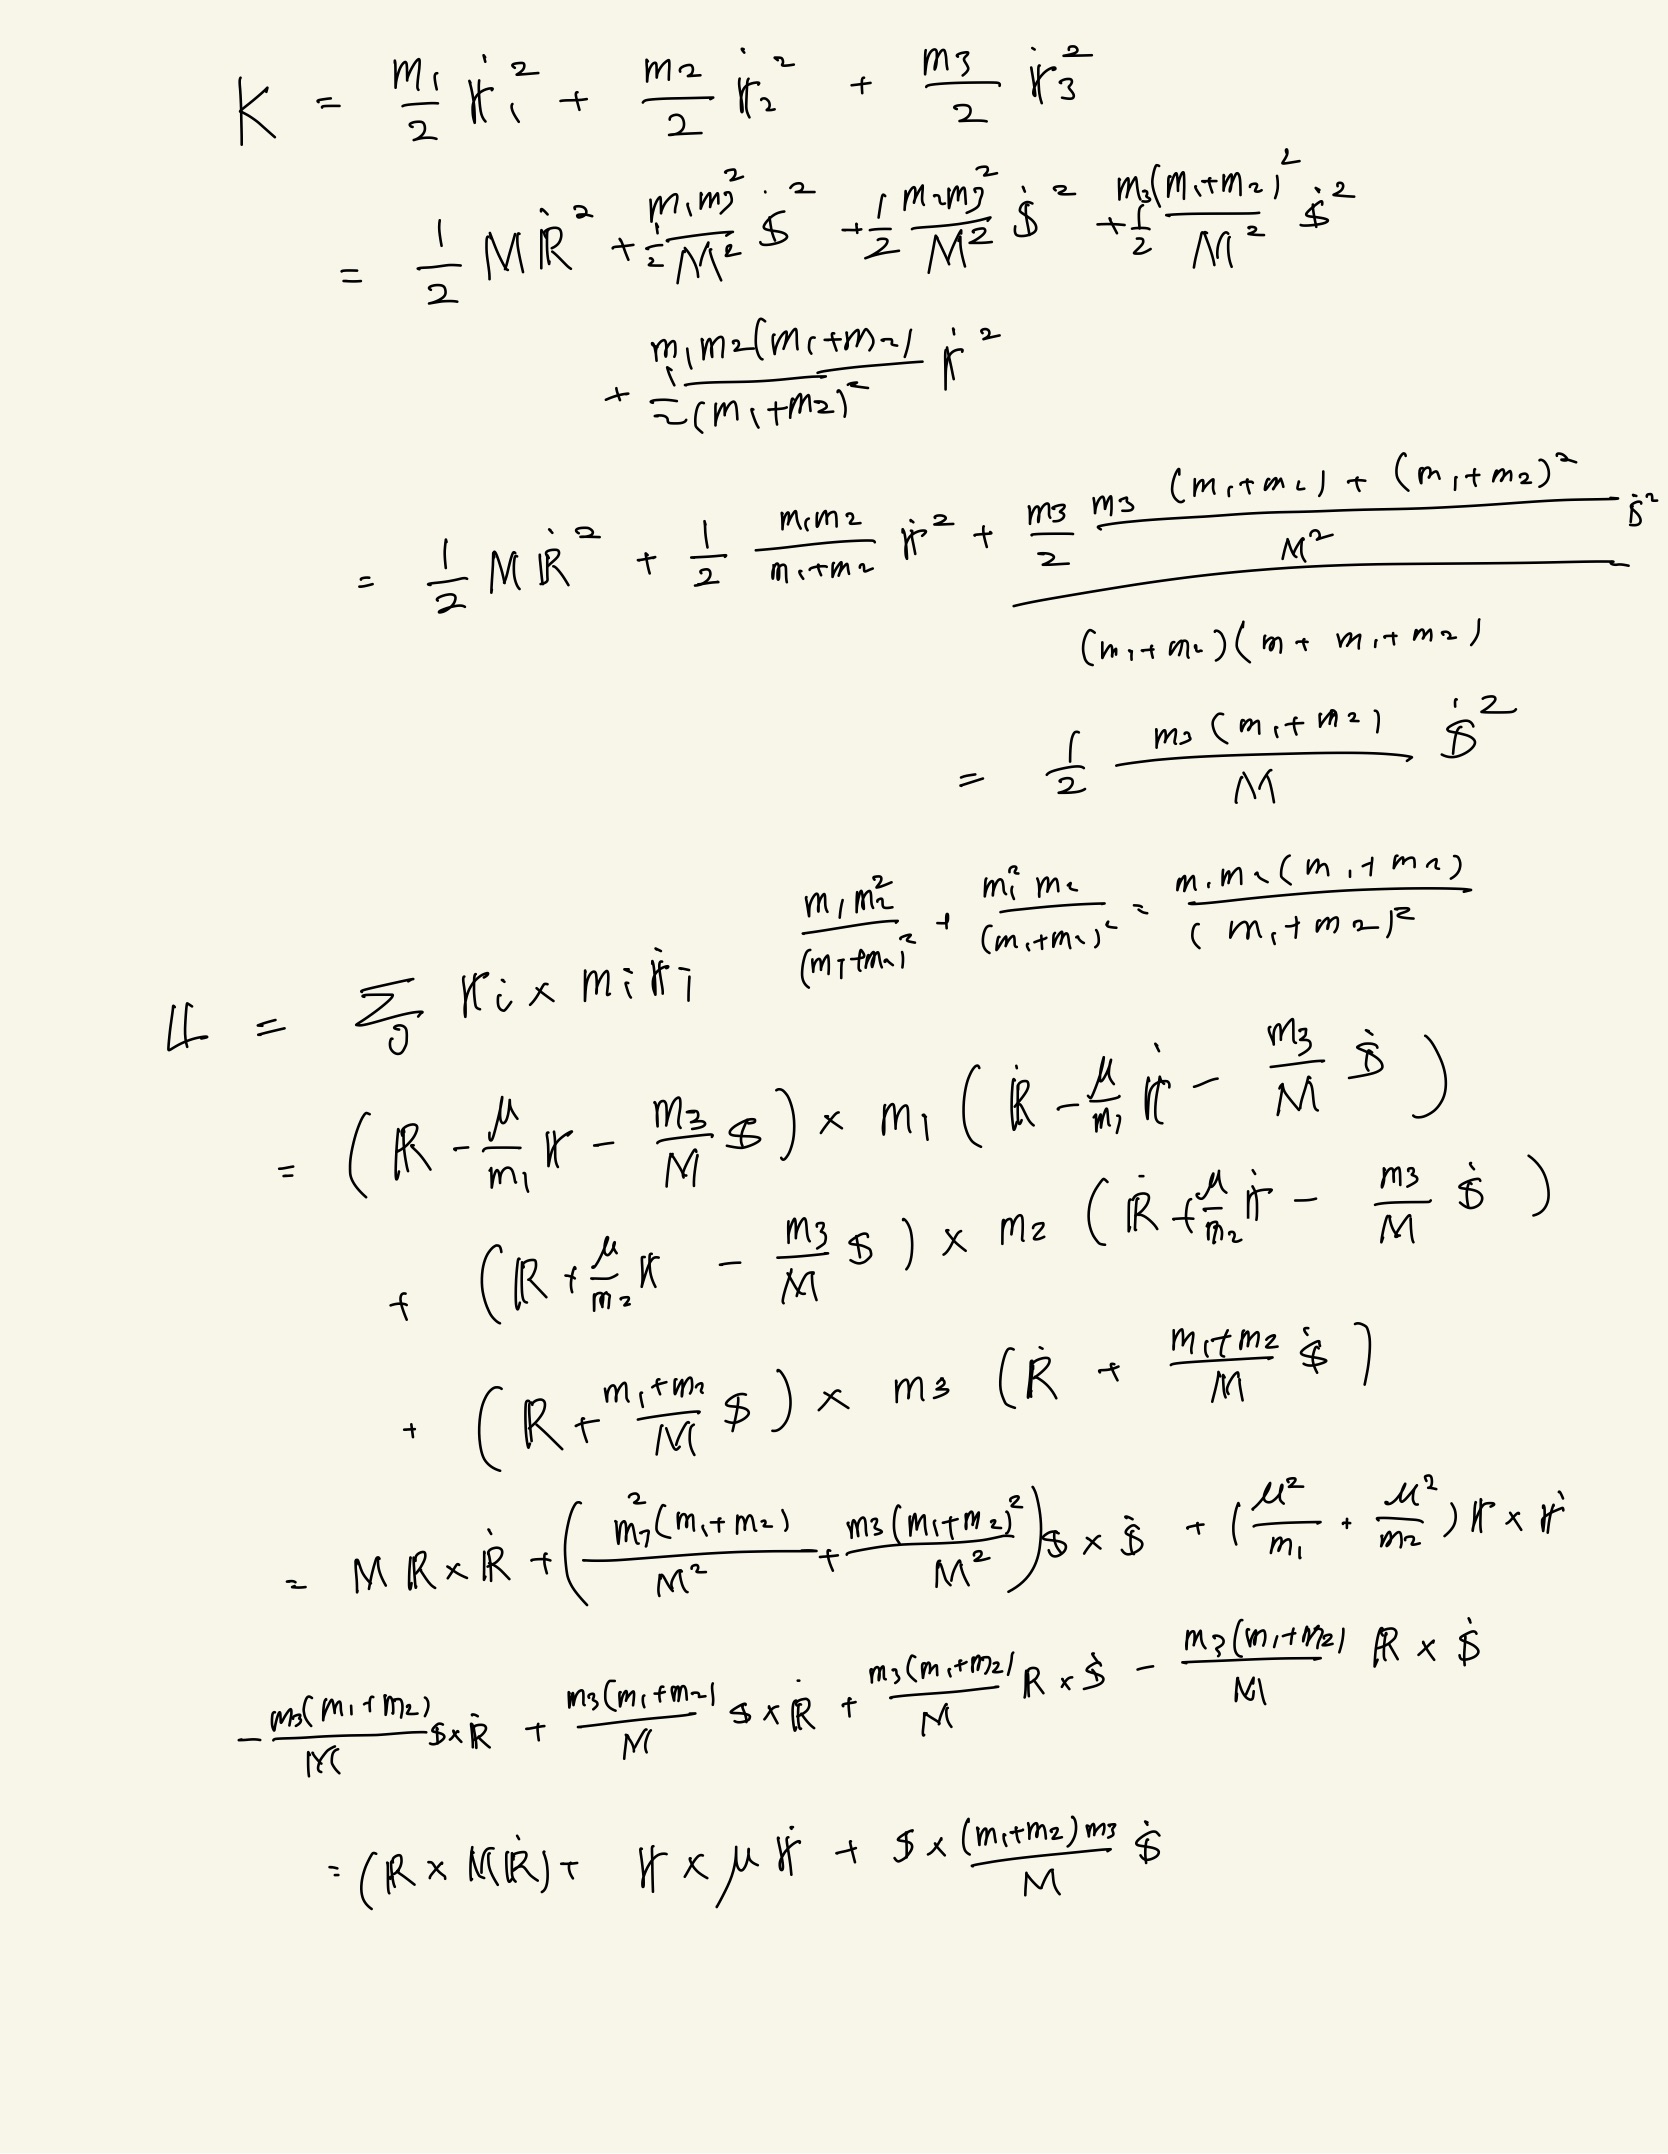 K = m₁/2 ṙ₁² + m₂/2 ṙ₂² + m₃/2 ṙ₃²
= 1/2 MṘ² + 1/2 m₁m₃²/M² ṡ² + 1/2 m₂m₃²/M² ṡ² + 1/2 m₃(m₁+m₂)²/M² ṡ²
+ 1/2 m₁m₂(m₁+m₂)/(m₁+m₂)² ṙ²
= 1/2 MṘ² + 1/2 m₁m₂/(m₁+m₂) ṙ² + m₃/2 (m₃(m₁+m₂) + (m₁+m₂)²)/M² ṡ²
(m₁+m₂)(m + m₁+m₂)
= 1/2 m₃(m₁+m₂)/M ṡ²
m₁m₂²/(m₁+m₂)² + m₁²m₂/(m₁+m₂)² = m₁m₂(m₁+m₂)/(m₁+m₂)²
L = Σ rᵢ × mᵢṙᵢ
= (R - μ/m₁ r - m₃/M s) × m₁(Ṙ - μ/m₁ ṙ - m₃/M ṡ)
+ (R + μ/m₂ r - m₃/M s) × m₂(Ṙ + μ/m₂ ṙ - m₃/M ṡ)
+ (R + (m₁+m₂)/M s) × m₃(Ṙ + (m₁+m₂)/M ṡ)
= MR × Ṙ + (m₃²(m₁+m₂)/M² + m₃(m₁+m₂)²/M²) s × ṡ + (μ²/m₁ + μ²/m₂) r × ṙ
- m₃(m₁+m₂)/M s×Ṙ + m₃(m₁+m₂)/M s×Ṙ + m₃(m₁+m₂)/M R×ṡ - m₃(m₁+m₂)/M R×ṡ
= (R × MṘ) + r × μṙ + s × (m₁+m₂)m₃/M ṡ